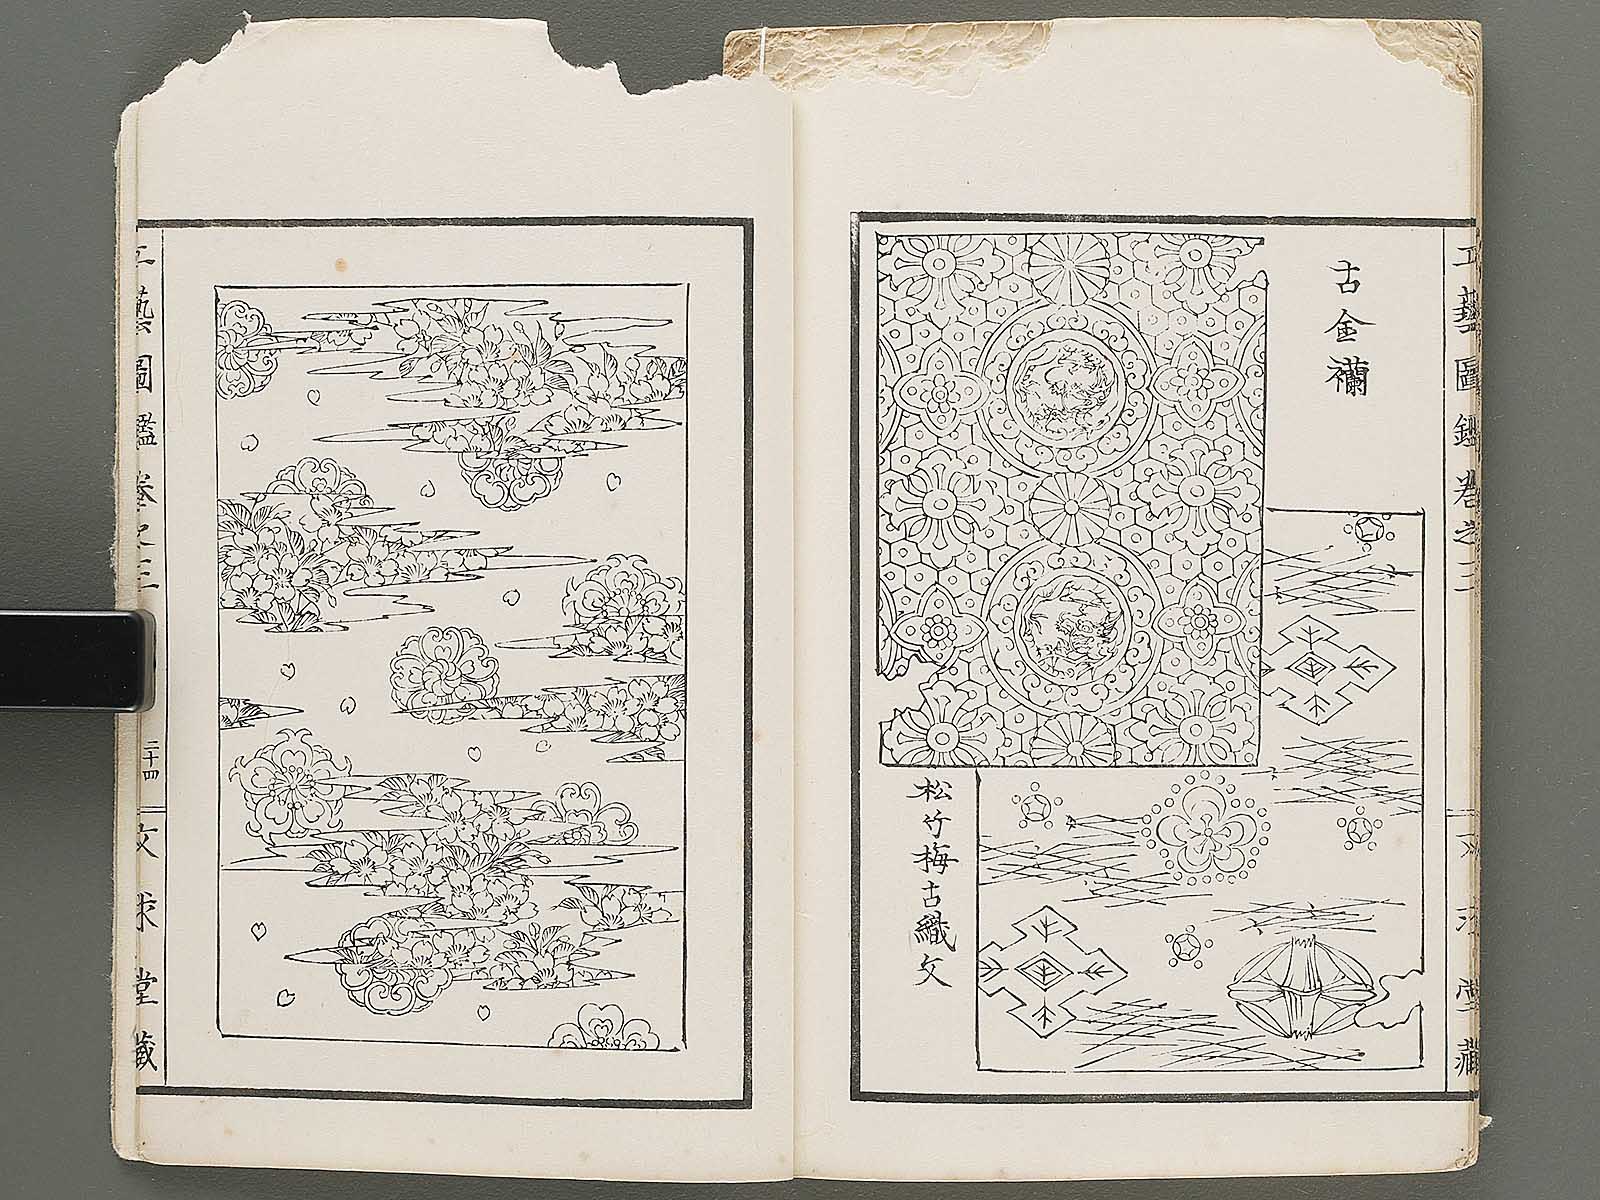 工藝圖鑑卷之三
文求堂藏
古金襴
松竹梅古織文
工藝圖鑑卷之三
二十四
文求堂藏